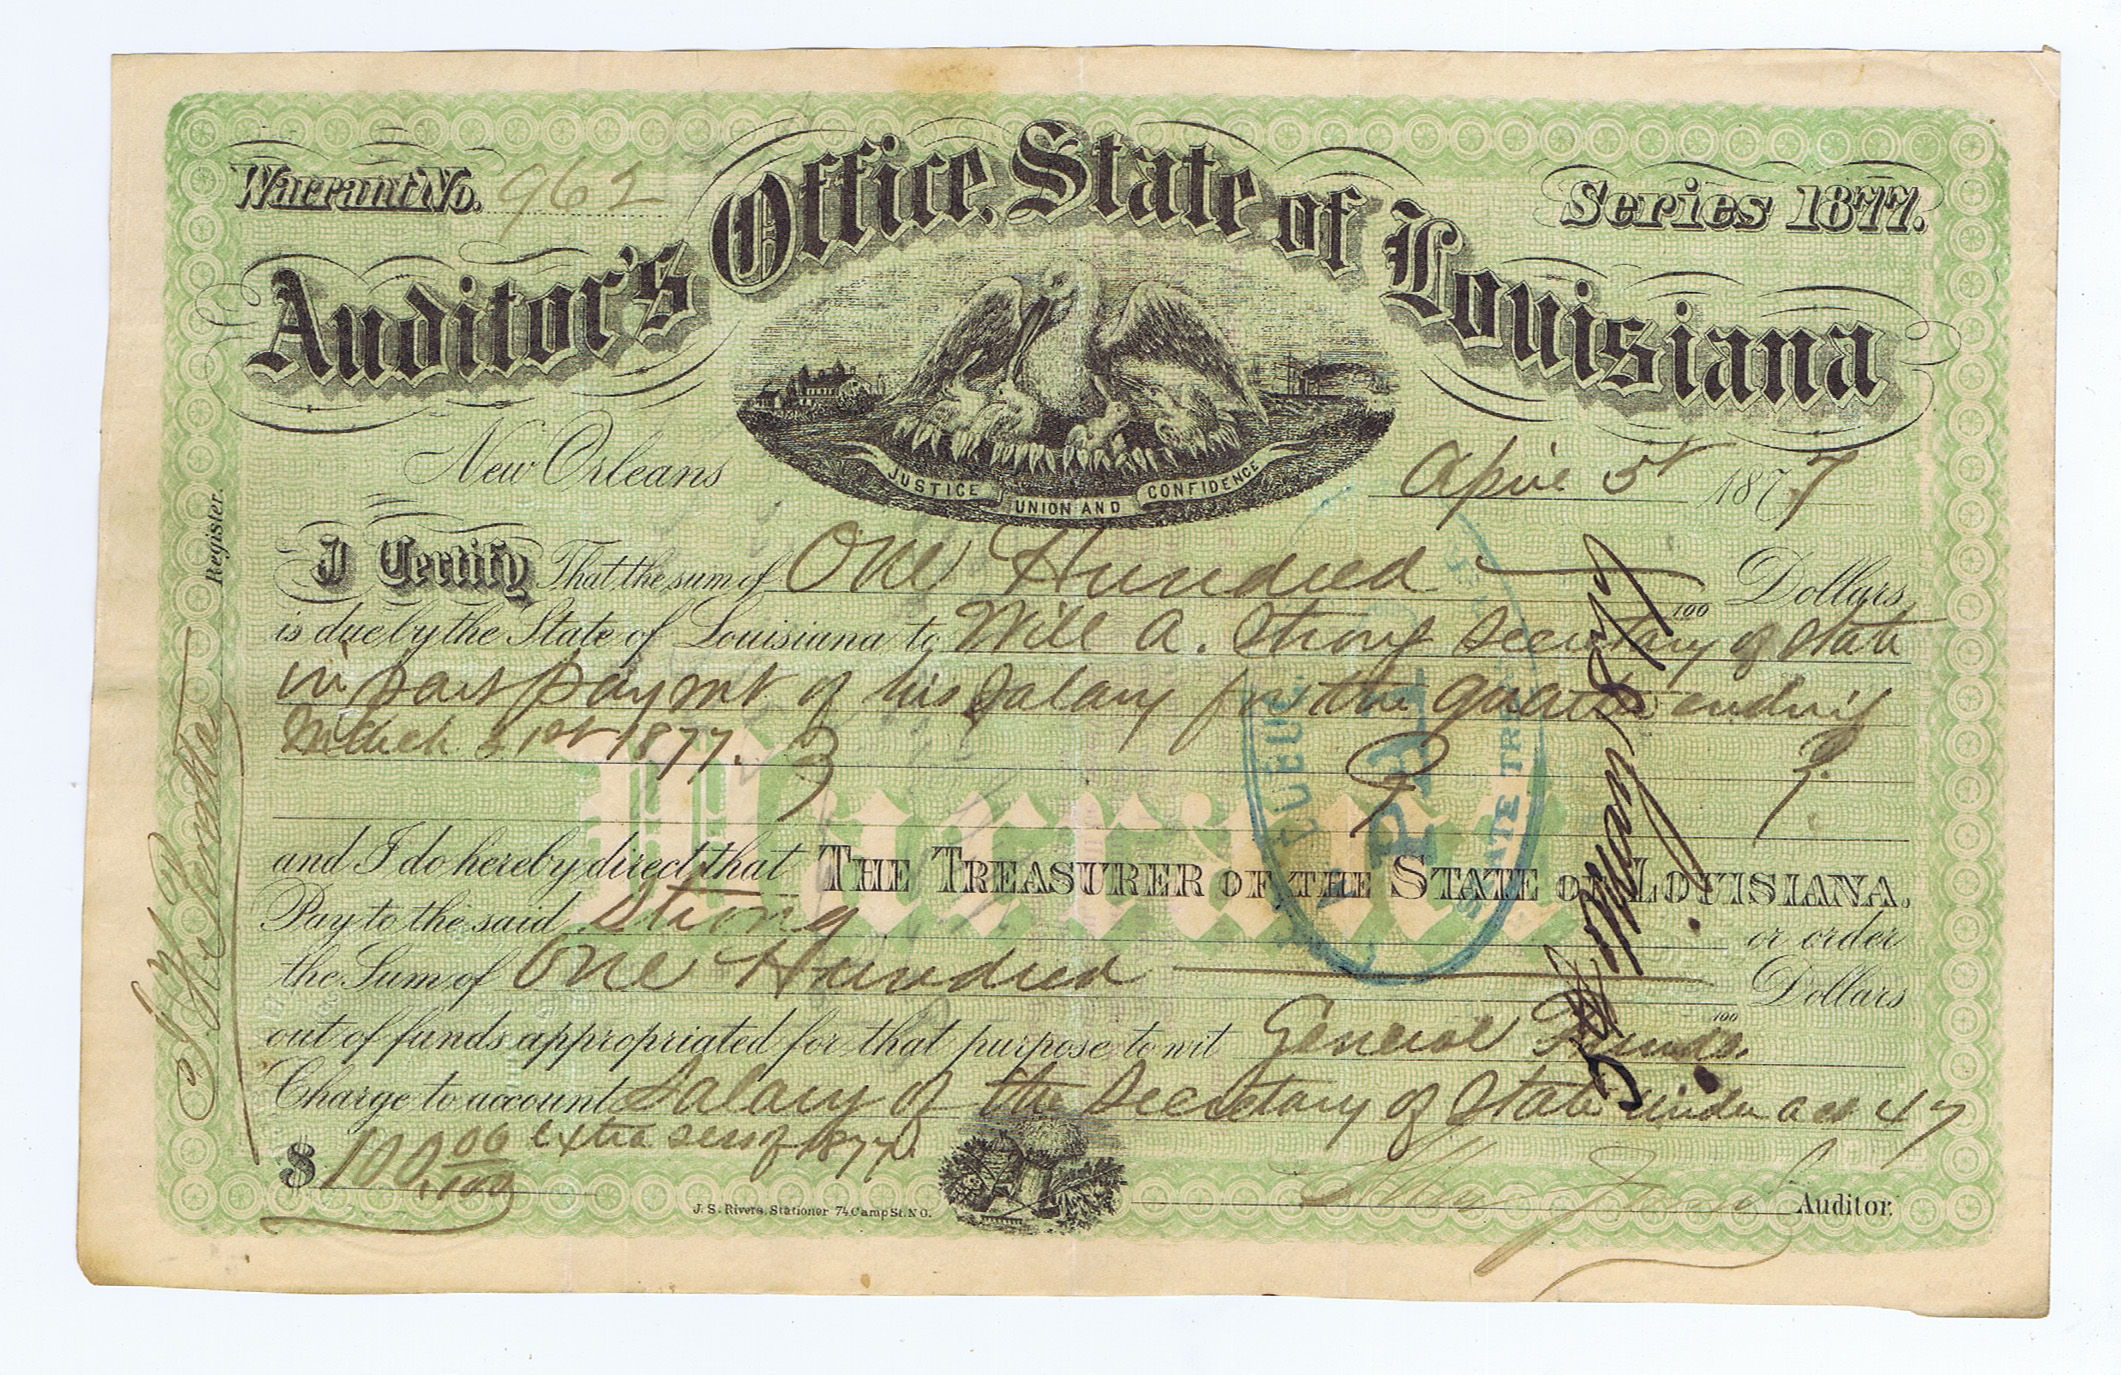 Warrant No. 962
Series 1877.
Auditor's Office, State of Louisiana
JUSTICE UNION AND CONFIDENCE
New Orleans April 5th 1877
I Certify That the sum of One Hundred /100 Dollars,
is due by the State of Louisiana to Will A. Strong Secretary of State
in part paymt of his Salary for the quarter ending
March 31st 1877.
and I do hereby direct that THE TREASURER OF THE STATE OF LOUISIANA.
Pay to the said Strong or order
the Sum of One Hundred /100 Dollars
out of funds appropriated for that purpose, to wit General Funds.
Charge to account Salary of the Secretary of State under act 47
extra sess of 1877.
$ 100 00/100
J. S. Rivers, Stationer 74, Camp St. N O.
Auditor.
Register.
Warrant
PAID
STATE TREA